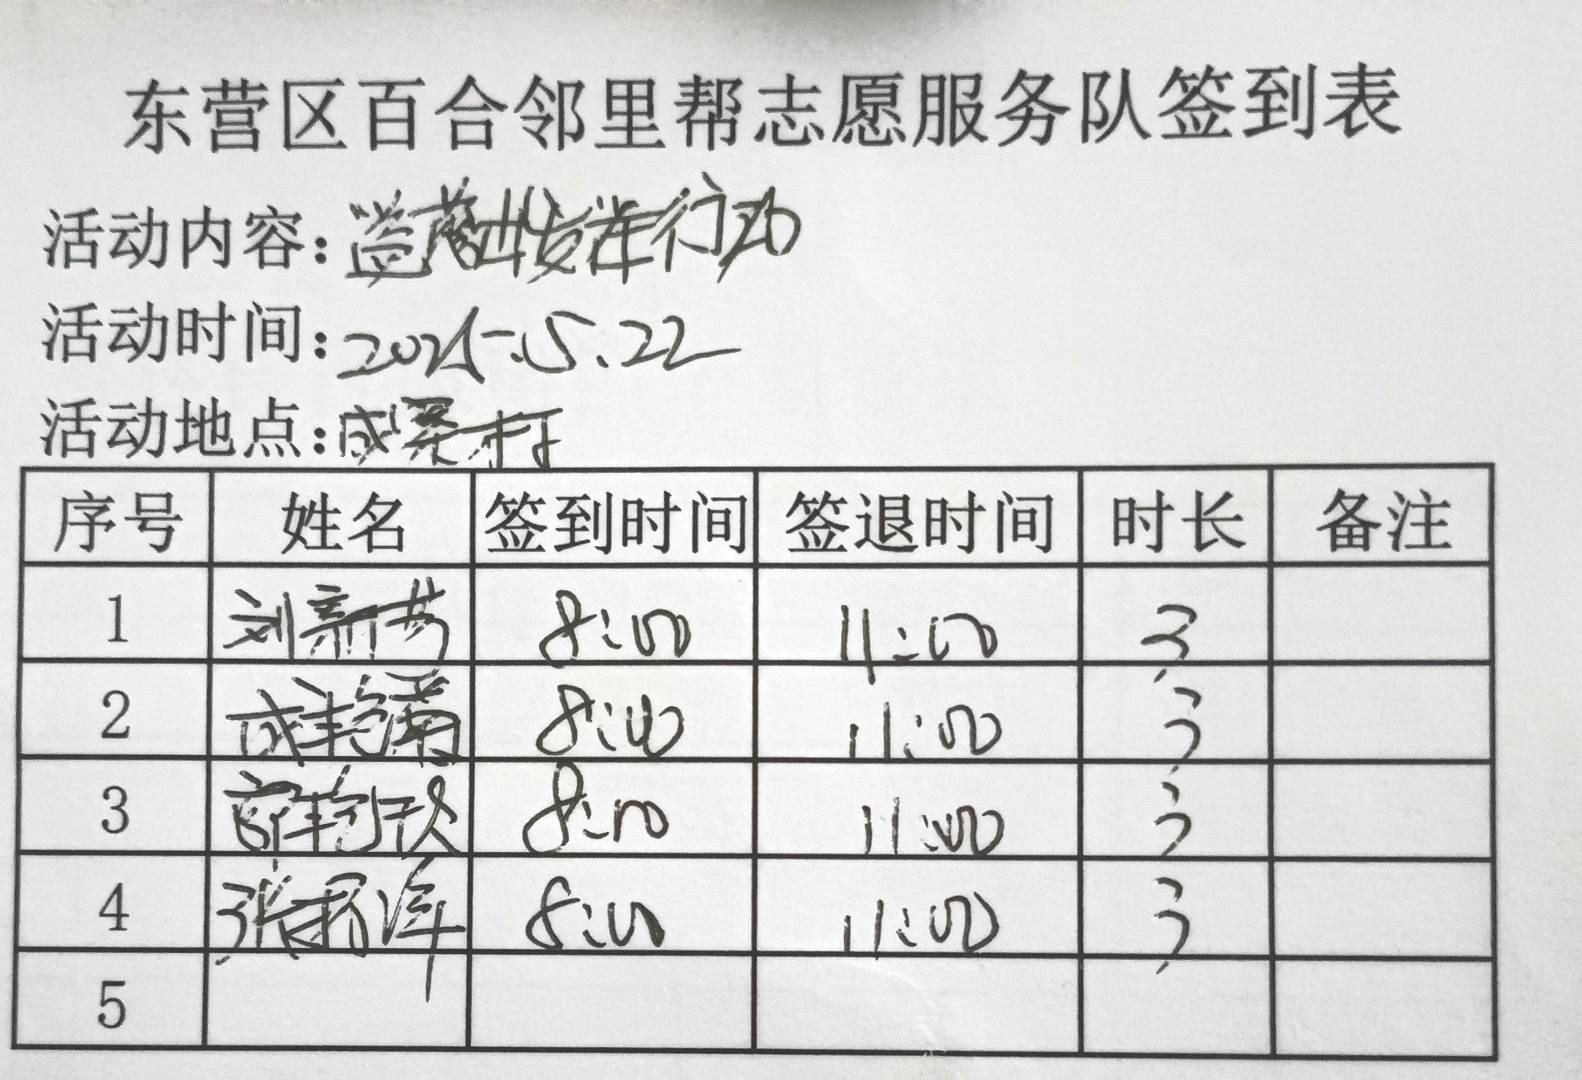 东营区百合邻里帮志愿服务队签到表
活动内容:益 行动
活动时间:2025.5.22
活动地点:成桑村
序号 姓名 签到时间 签退时间 时长 备注
1 刘新 8:00 11:00 3
2 成艳菊 8:00 11:00 3
3 8:00 11:00 3
4 张 8:00 11:00 3
5